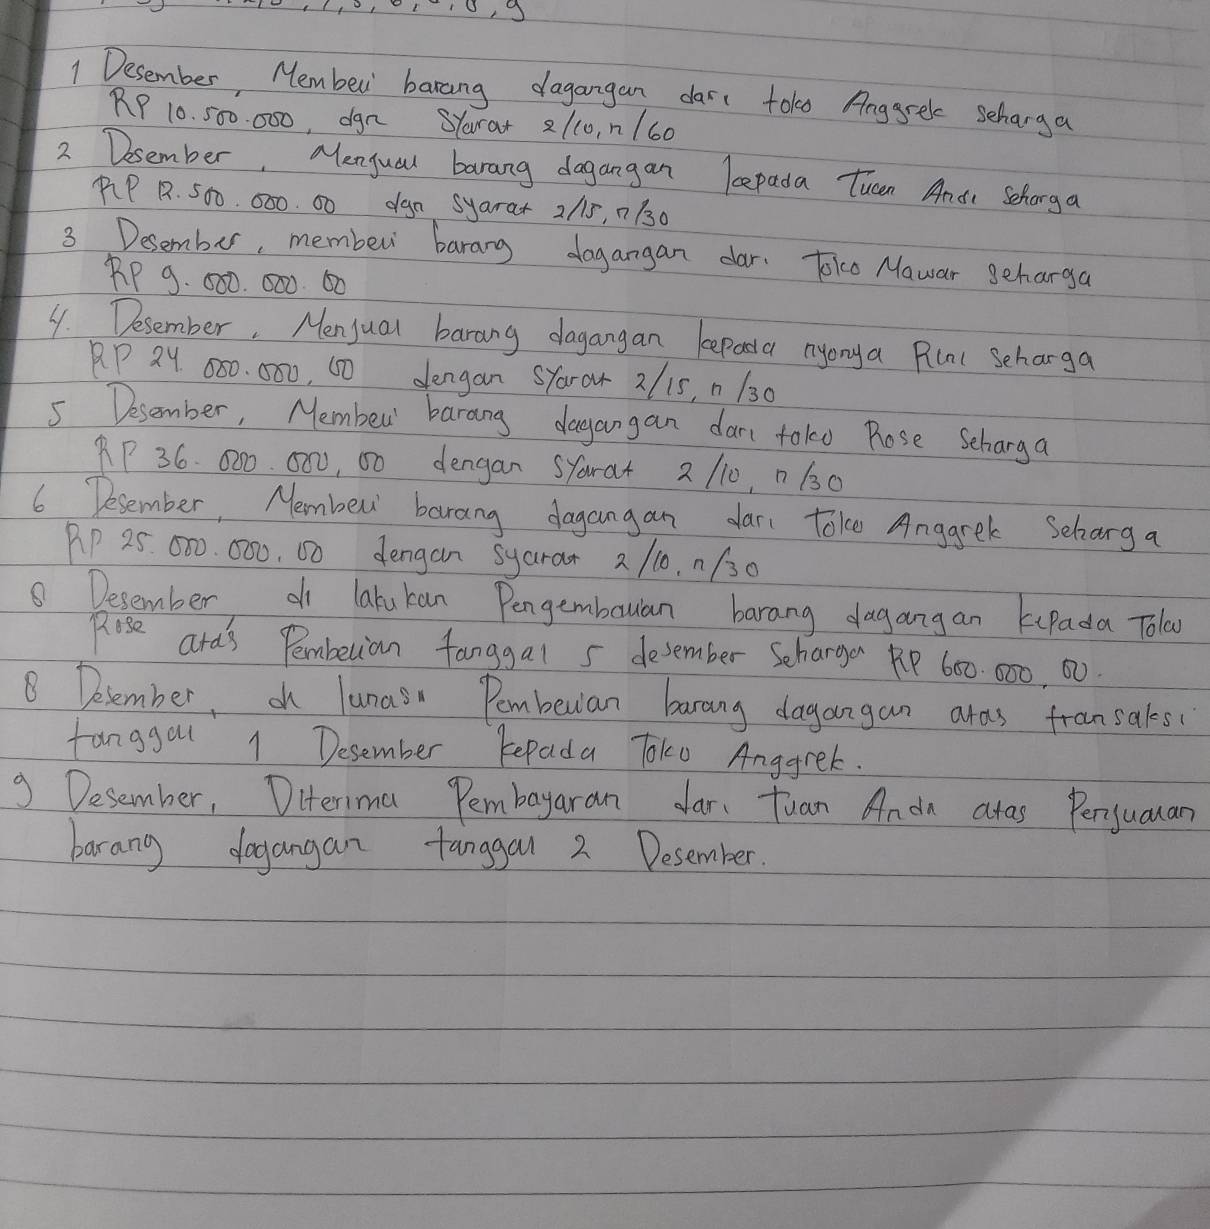 1 Desember, Membeli barang dagangan dari toko Anggrek seharga
RP 10.500.000, dgn Syarat 2/10, n/60
2 Desember, Menjual barang dagangan kepada Tuan Andi Seharga
RP 12.500.000.00 dgn syarat 2/15, n/30
3 Desember, membeli barang dagangan dari Toko Mawar seharga
RP 9.000.000.00
4. Desember, Menjual barang dagangan kepada nyonya Rini seharga
RP 24.000.000,00 dengan syarat 2/15, n/30
5 Desember, Membeli barang dagangan dari toko Rose Seharga
RP 36.000.000,00 dengan syarat 2/10, n/30
6 Desember, Membeli barang dagangan dari Toko Anggrek Seharga
RP 25.000.000,00 dengan syarat 2/10, n/30
8 Desember di lakukan Pengembalian barang dagangan kepada Toko
Rose atas Pembelian tanggal 5 desember Seharga RP 600.000,00.
8 Desember, di lunasi Pembelian barang dagangan atas transaksi
tanggal 1 Desember kepada Toko Anggrek.
9 Desember, Diterima Pembayaran dari Tuan Andi atas Penjualan
barang dagangan tanggal 2 Desember.